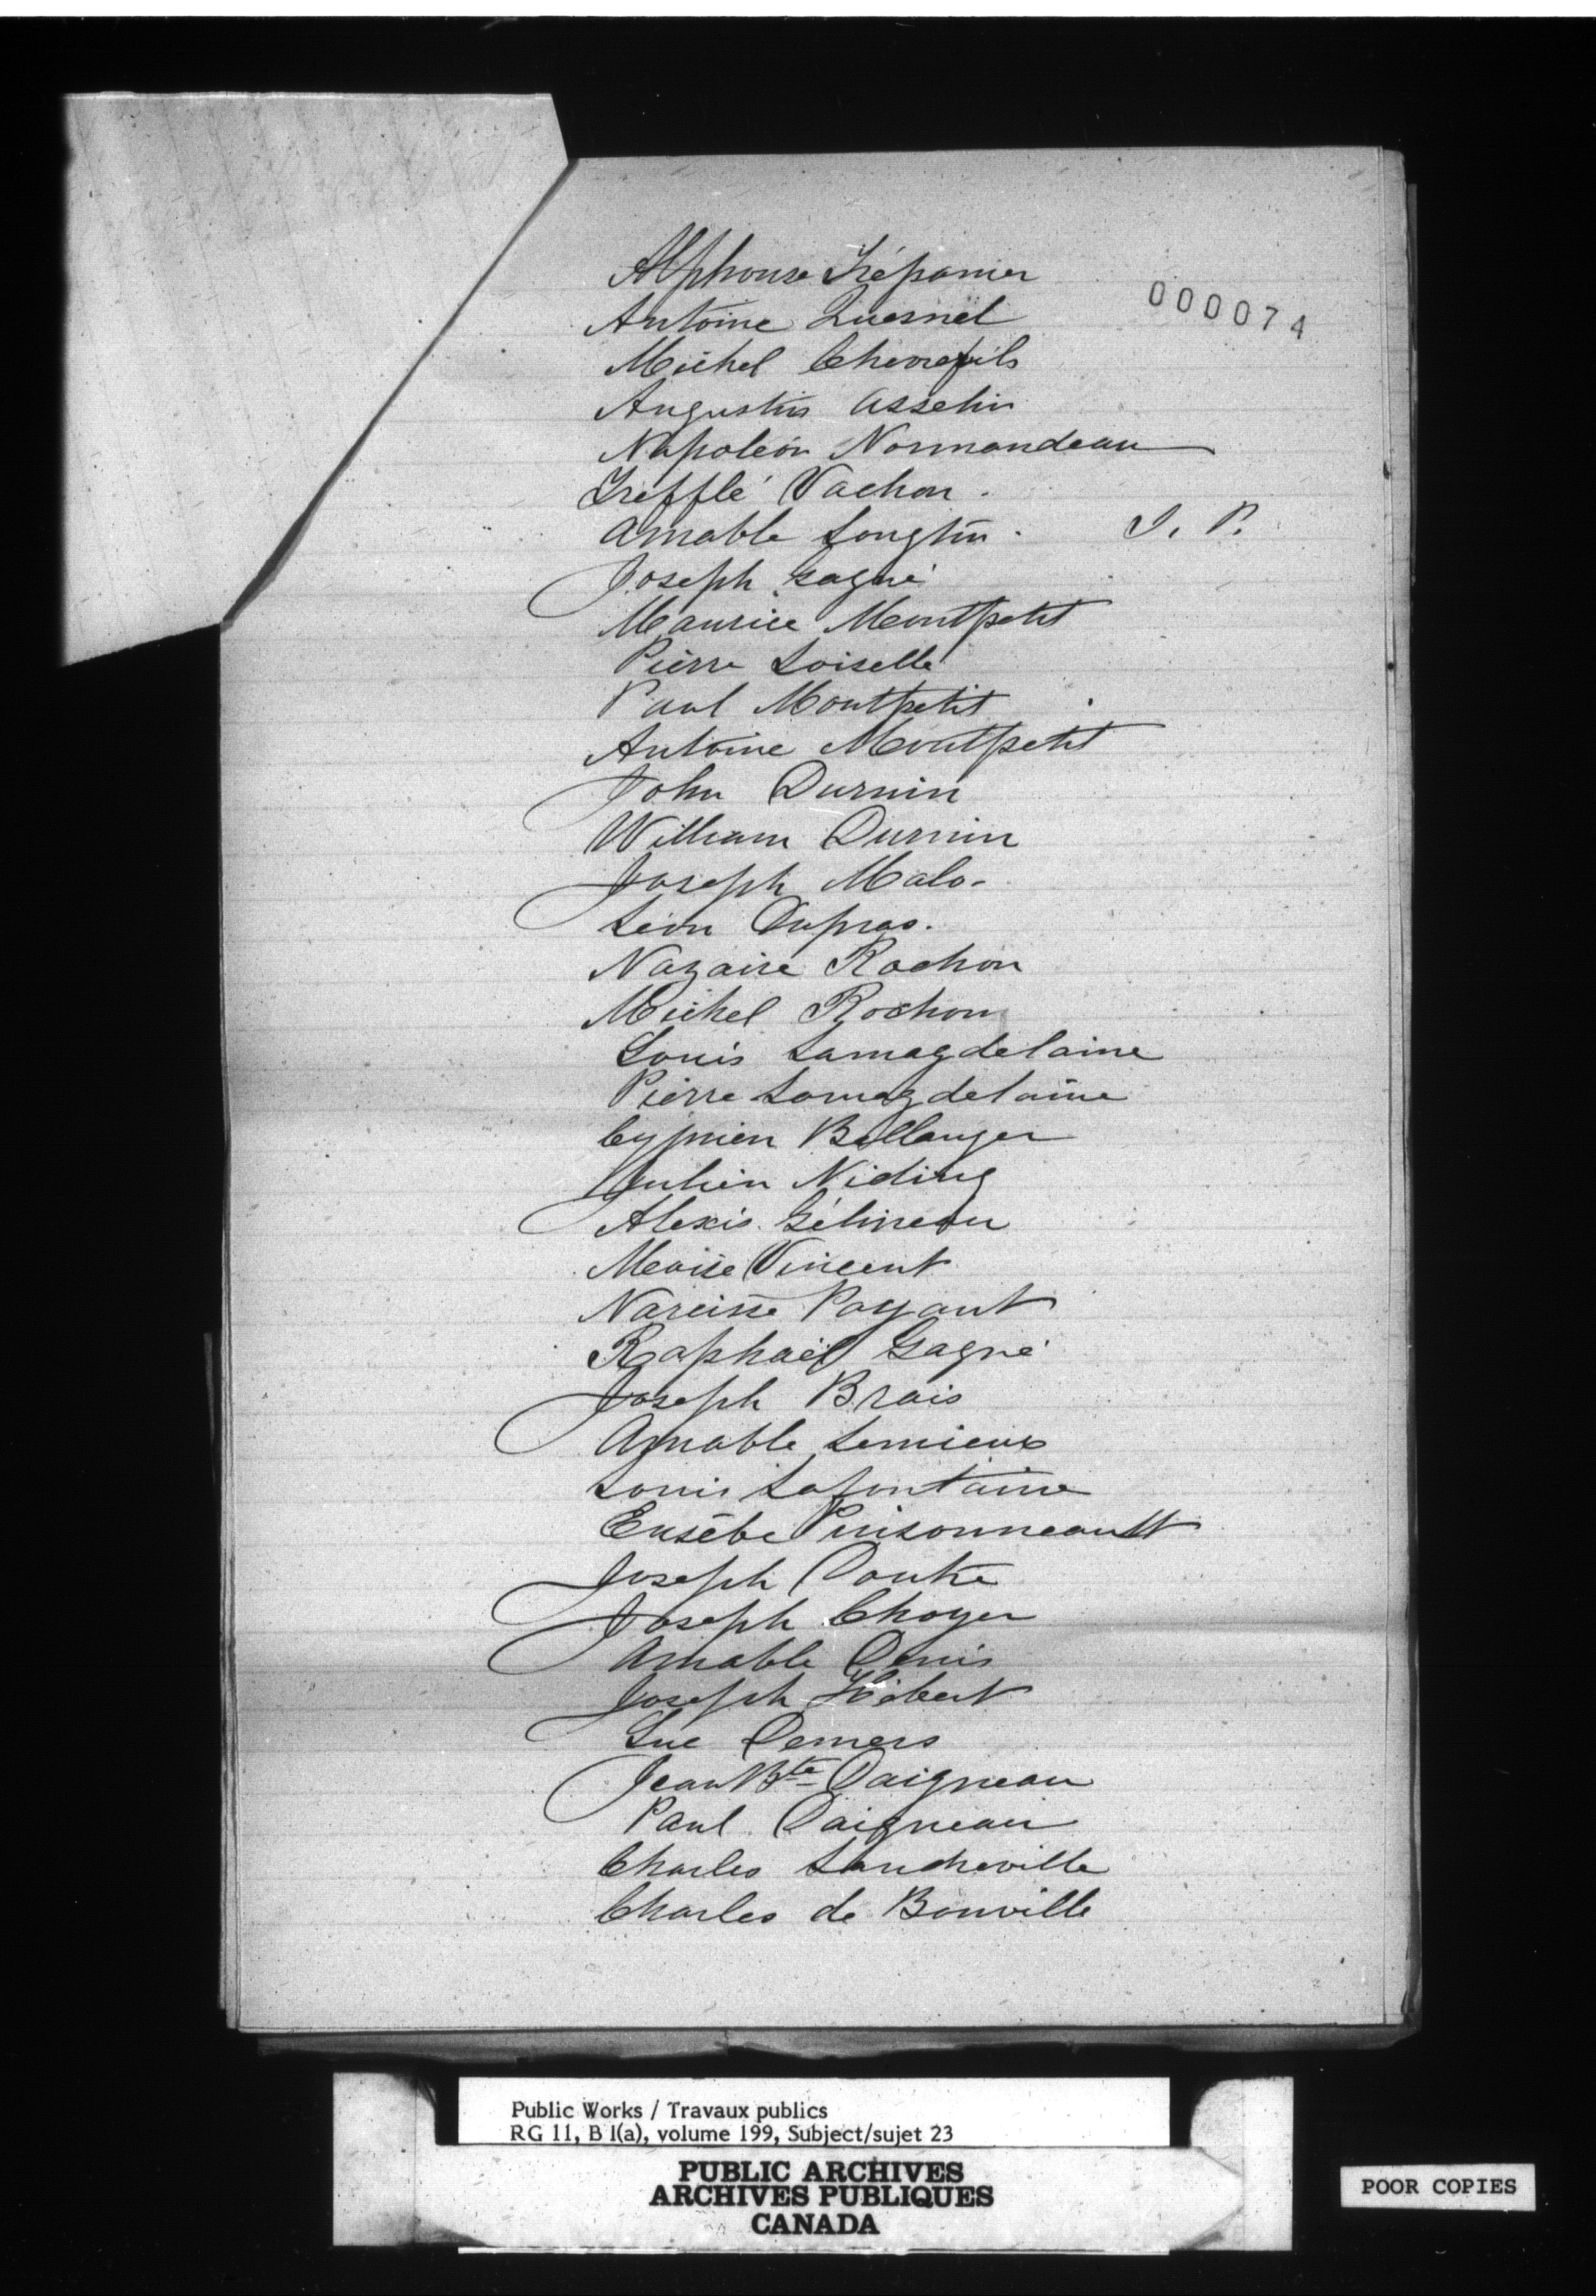 Alphonse Trépanier
000074
Antoine Quesnel
Michel Chevrefils
Augustin Asselin
Napoléon Normandeau
Trefflé Vachon.
Amable Longtin. J. P.
Joseph Gagné
Maurice Montpetit
Pierre Loiselle
Paul Montpetit
Antoine Montpetit
John Durnin
William Durnin
Joseph Malo-
Léon Dupras.
Nazaire Rochon
Michel Rochon
Louis Lamagdelaine
Pierre Lamagdelaine
Cyprien Bellanger
Julien Niding
Alexis Gélineau
Moïse Vincent
Narcisse Payant
Raphaël Gagné
Joseph Brais
Amable Lemieux
Louis Lafontaine
Eusèbe Pinsonneault
Joseph Doutre
Joseph Choyer
Amable Denis
Joseph Hébert
Luc Demers
Jean Bte Daigneau
Paul Daigneau
Charles
Charles de Bonville
Public Works / Travaux publics
RG 11, B 1(a), volume 199, Subject/sujet 23
PUBLIC ARCHIVES
ARCHIVES PUBLIQUES
CANADA
POOR COPIES